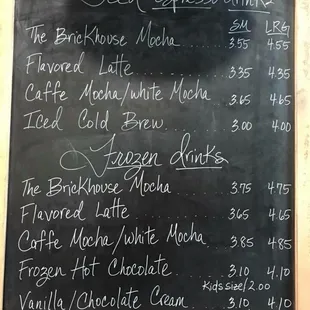 Iced espresso drinks
SM LRG
The Brickhouse Mocha 3.55 4.55
Flavored Latte 3.35 4.35
Caffe Mocha/white Mocha 3.65 4.65
Iced Cold Brew 3.00 4.00
Frozen drinks
The Brickhouse Mocha 3.75 4.75
Flavored Latte 3.65 4.65
Caffe Mocha/White Mocha 3.85 4.85
Frozen Hot Chocolate 3.10 4.10
Kids size/2.00
Vanilla/Chocolate Cream 3.10 4.10